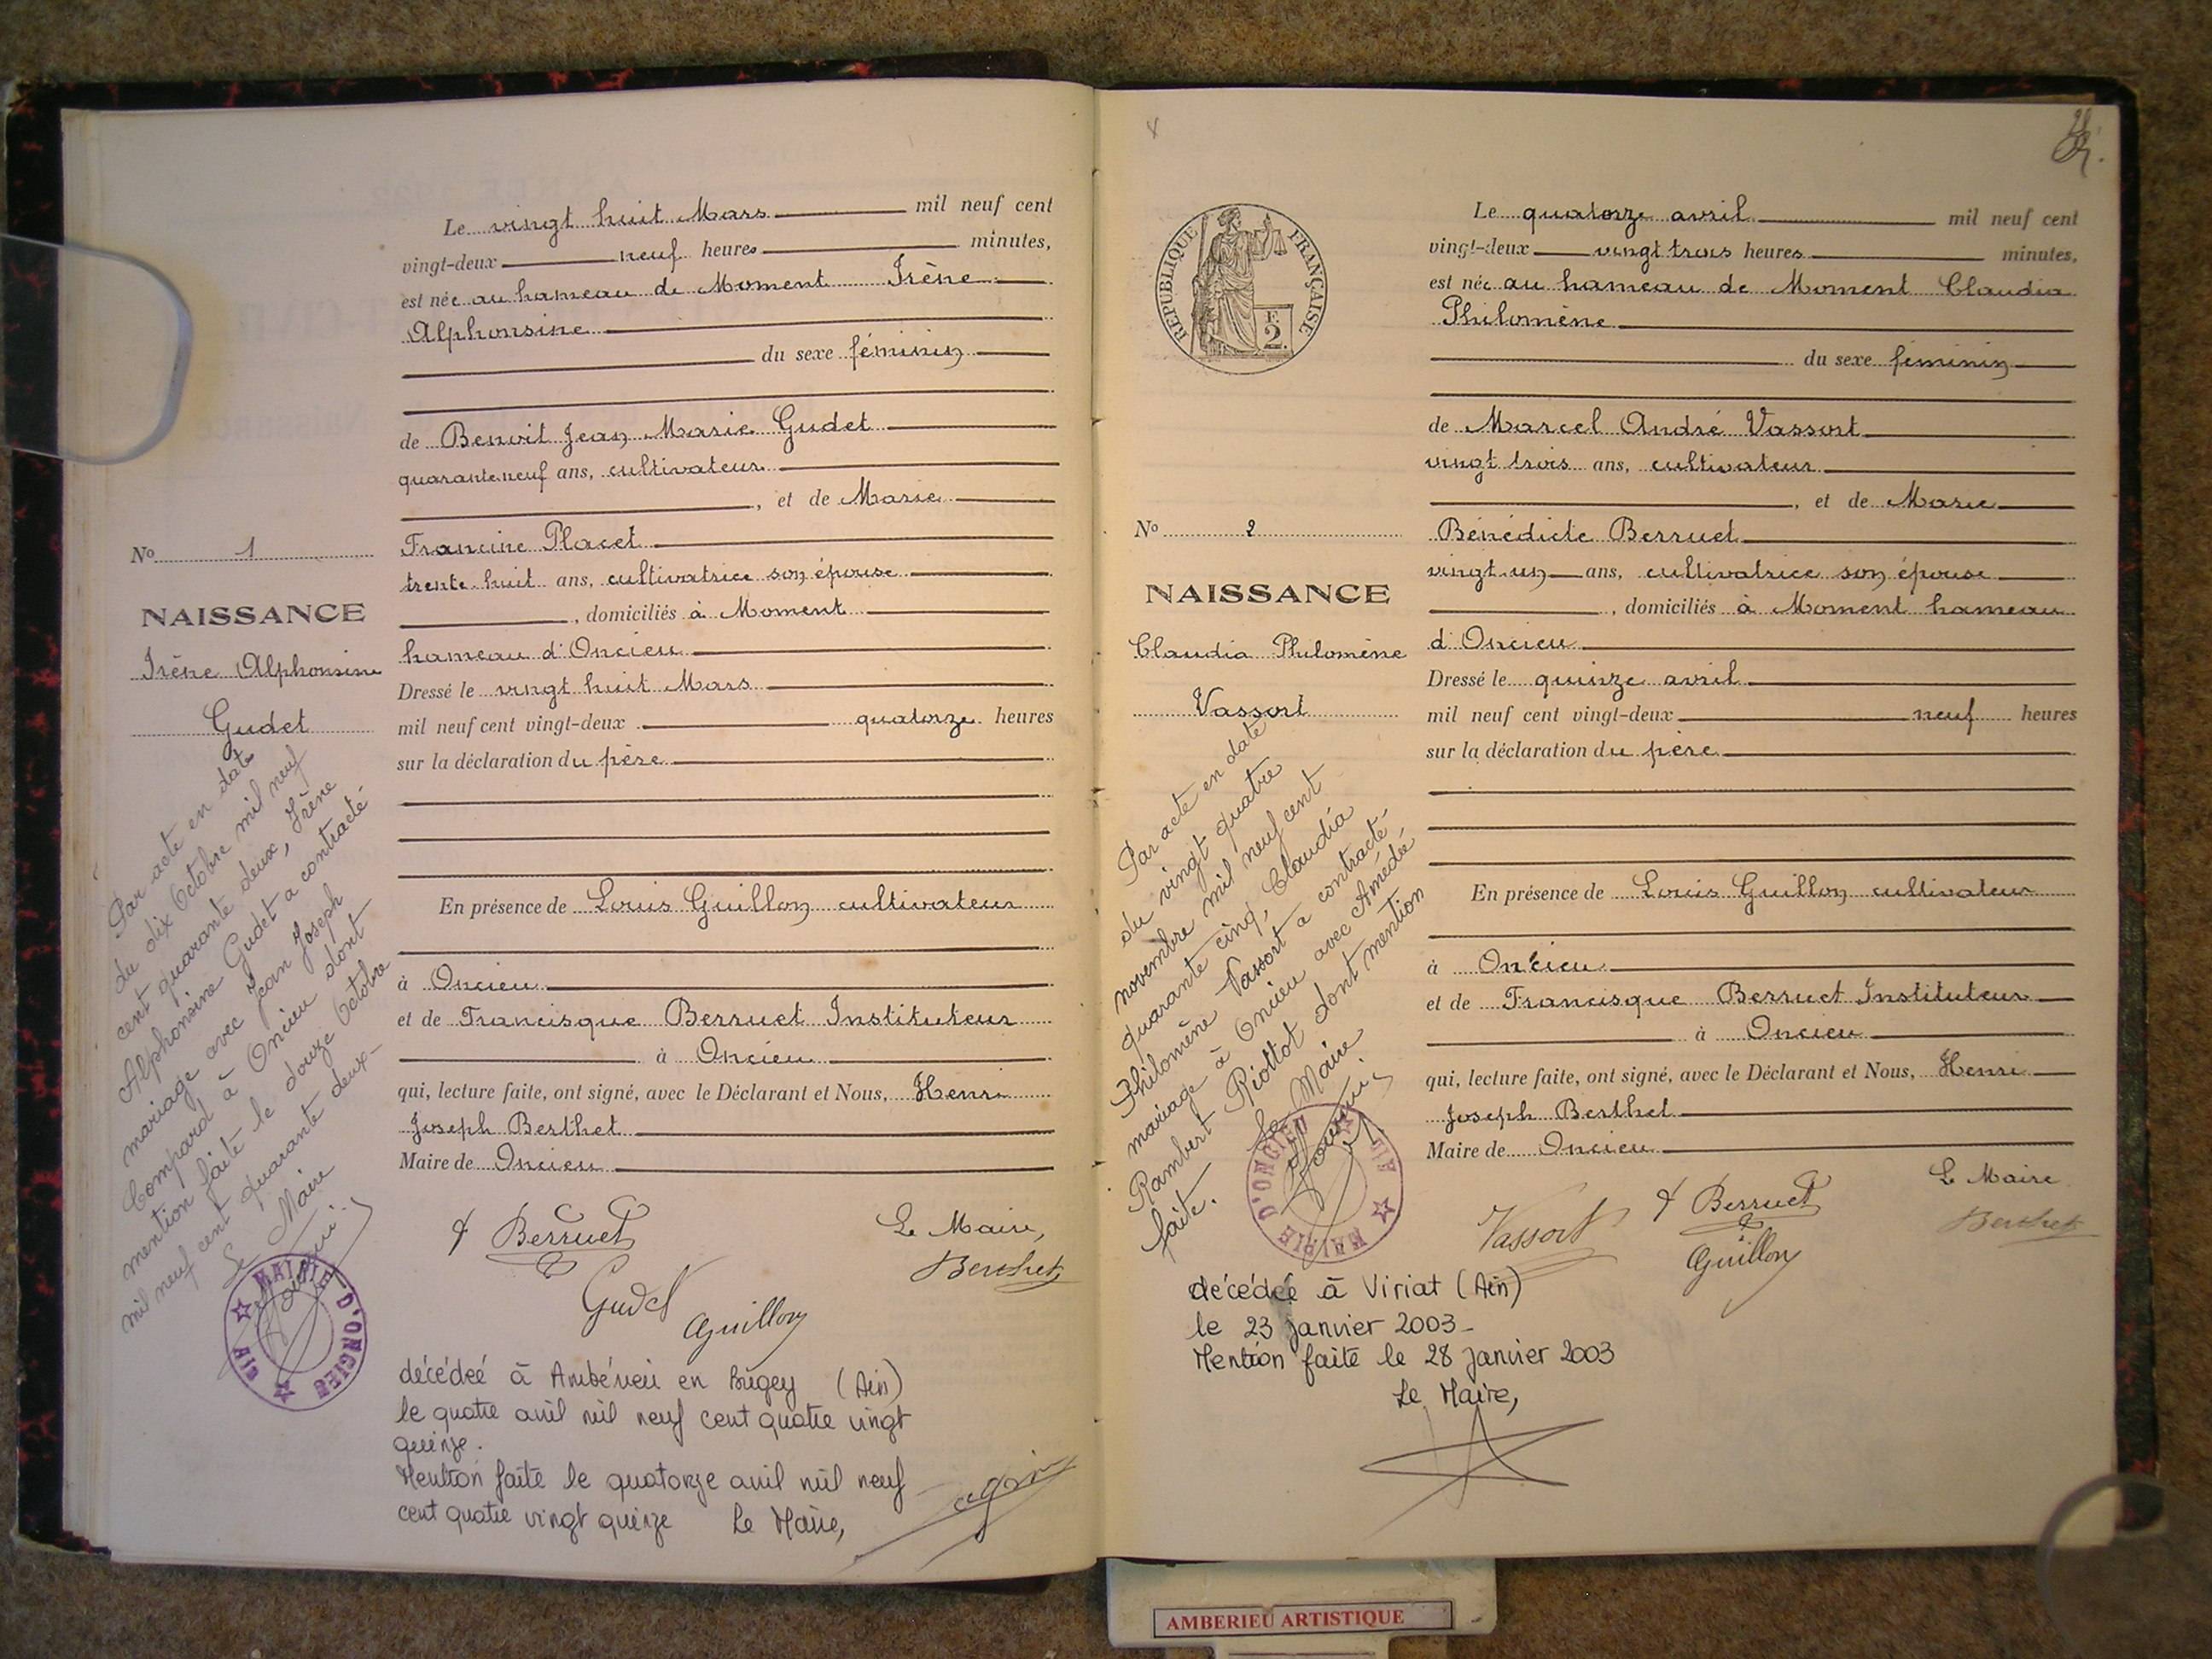 Le vingt huit Mars mil neuf cent
vingt-deux neuf heures minutes,
est née au hameau de Moment Irène
Alphonsine
du sexe féminin
de Benoit Jean Marie Gudet
quarante neuf ans, cultivateur
, et de Marie
Francine Placet
trente huit ans, cultivatrice son épouse
, domiciliés à Moment
hameau d'Oncieu
Dressé le vingt huit Mars
mil neuf cent vingt-deux quatorze heures
sur la déclaration du père
En présence de Louis Guillon cultivateur
à Oncieu
et de Francisque Berruet Instituteur
à Oncieu
qui, lecture faite, ont signé, avec le Déclarant et Nous, Henri
Joseph Berthet
Maire de Oncieu
Le Maire,
Berruet
Berthet
Gudet
Guillon
décédée à Ambérieu en Bugey (Ain)
le quatre avril mil neuf cent quatre vingt
quinze.
Mention faite le quatorze avril mil neuf
cent quatre vingt quinze Le Maire,
No 1
NAISSANCE
Irène Alphonsine
Gudet
Par acte en date
du dix Octobre mil neuf
cent quarante deux, Irène
Alphonsine Gudet a contracté
mariage avec Jean Joseph
Compard à Oncieu dont
mention faite le douze Octobre
mil neuf cent quarante deux-
Le Maire
MAIRIE D'ONCIEU
AIN
8
REPUBLIQUE FRANÇAISE
F.
2.
Le quatorze avril mil neuf cent
vingt-deux vingt trois heures minutes,
est née au hameau de Moment Claudia
Philomène
du sexe féminin
de Marcel André Vassort
vingt trois ans, cultivateur
, et de Marie
Bénédicte Berruet
vingt-un ans, cultivatrice son épouse
, domiciliés à Moment hameau
d'Oncieu
Dressé le quinze avril
mil neuf cent vingt-deux neuf heures
sur la déclaration du père
En présence de Louis Guillon cultivateur
à Oncieu
et de Francisque Berruet Instituteur
à Oncieu
qui, lecture faite, ont signé, avec le Déclarant et Nous, Henri
Joseph Berthet
Maire de Oncieu
Le Maire
Vassort
Berruet
Berthet
Guillon
No 2
NAISSANCE
Claudia Philomène
Vassort
Par acte en date
du vingt quatre
novembre mil neuf cent
quarante cinq, Claudia
Philomène Vassort a contracté-
mariage à Oncieu avec Amédée
Rambert Riottot dont mention
faite. Le Maire
MAIRIE D'ONCIEU
AIN
décédée à Viriat (Ain)
le 23 janvier 2003-
Mention faite le 28 janvier 2003
Le Maire,
AMBERIEU ARTISTIQUE